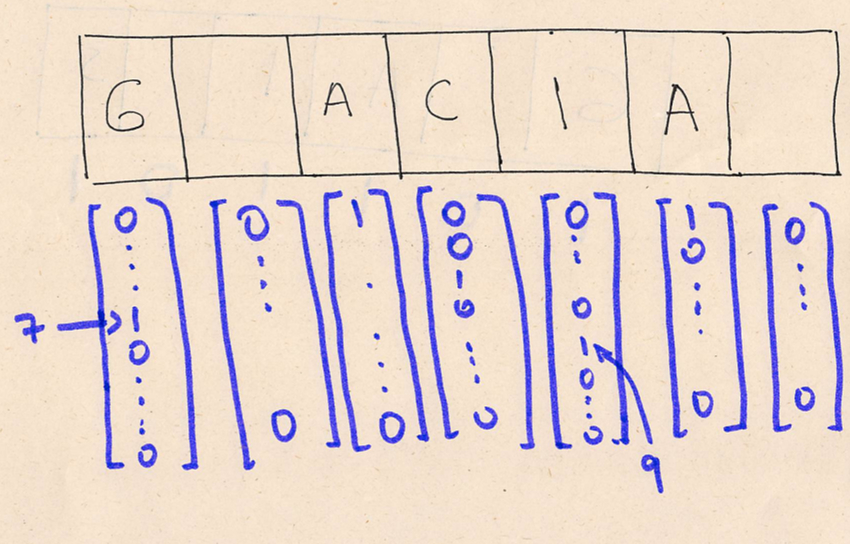 G A C I A
0 0 1 0 0 1 0
⋮ ⋮ 0 ⋮ 0 ⋮
1 ⋮
0 0
7 → 1
0 1
⋮ ⋮ ⋮ 0
0 0 0 0 0 0
0
9